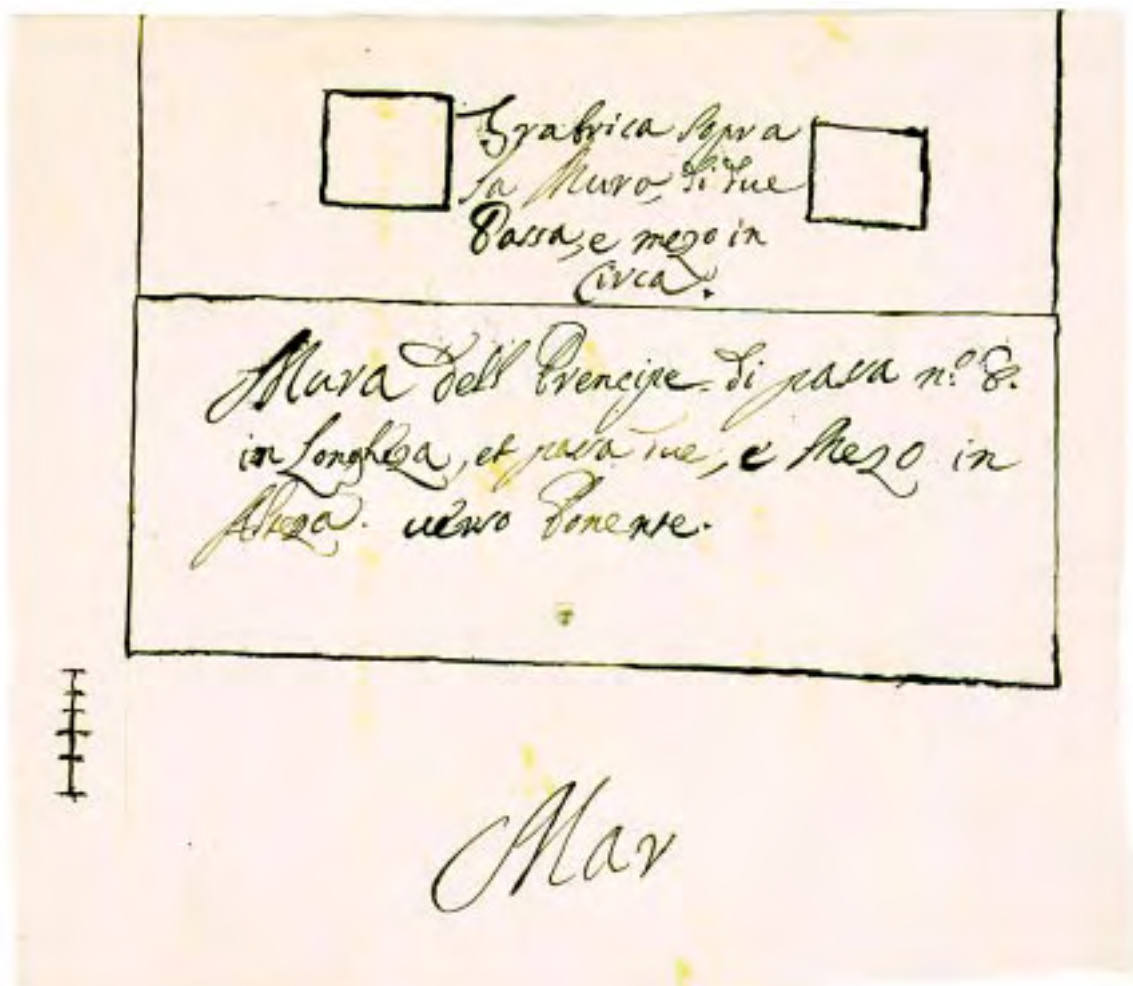 Frabrica sopra
la Muro, di due
Passa, e mezo in
Circa.
Mura dell Prencipe di passa n.º 8.
in Longheza, et passa due, e Mezo in
Alteza. verso Ponente.
Mar